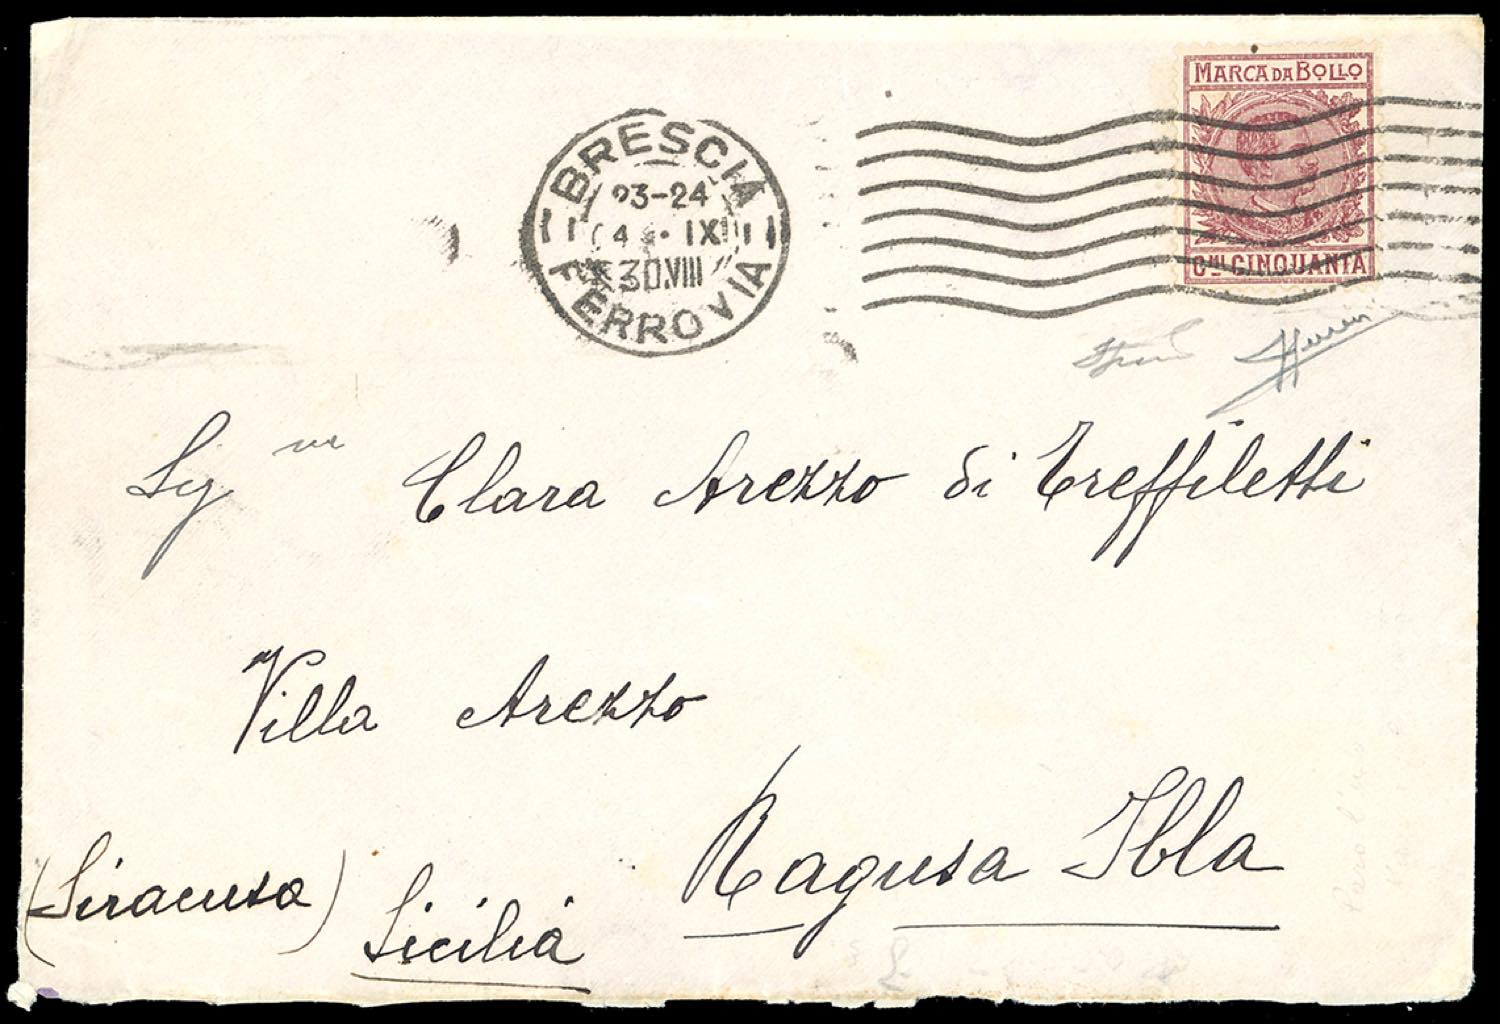 MARCA DA BOLLO
Cmi CINQUANTA
BRESCIA
23-24
4 . IX
30.VIII
FERROVIA
Sig na Clara Arezzo di Treffiletti
Villa Arezzo
Ragusa Ibla
(Siracusa) Sicilia